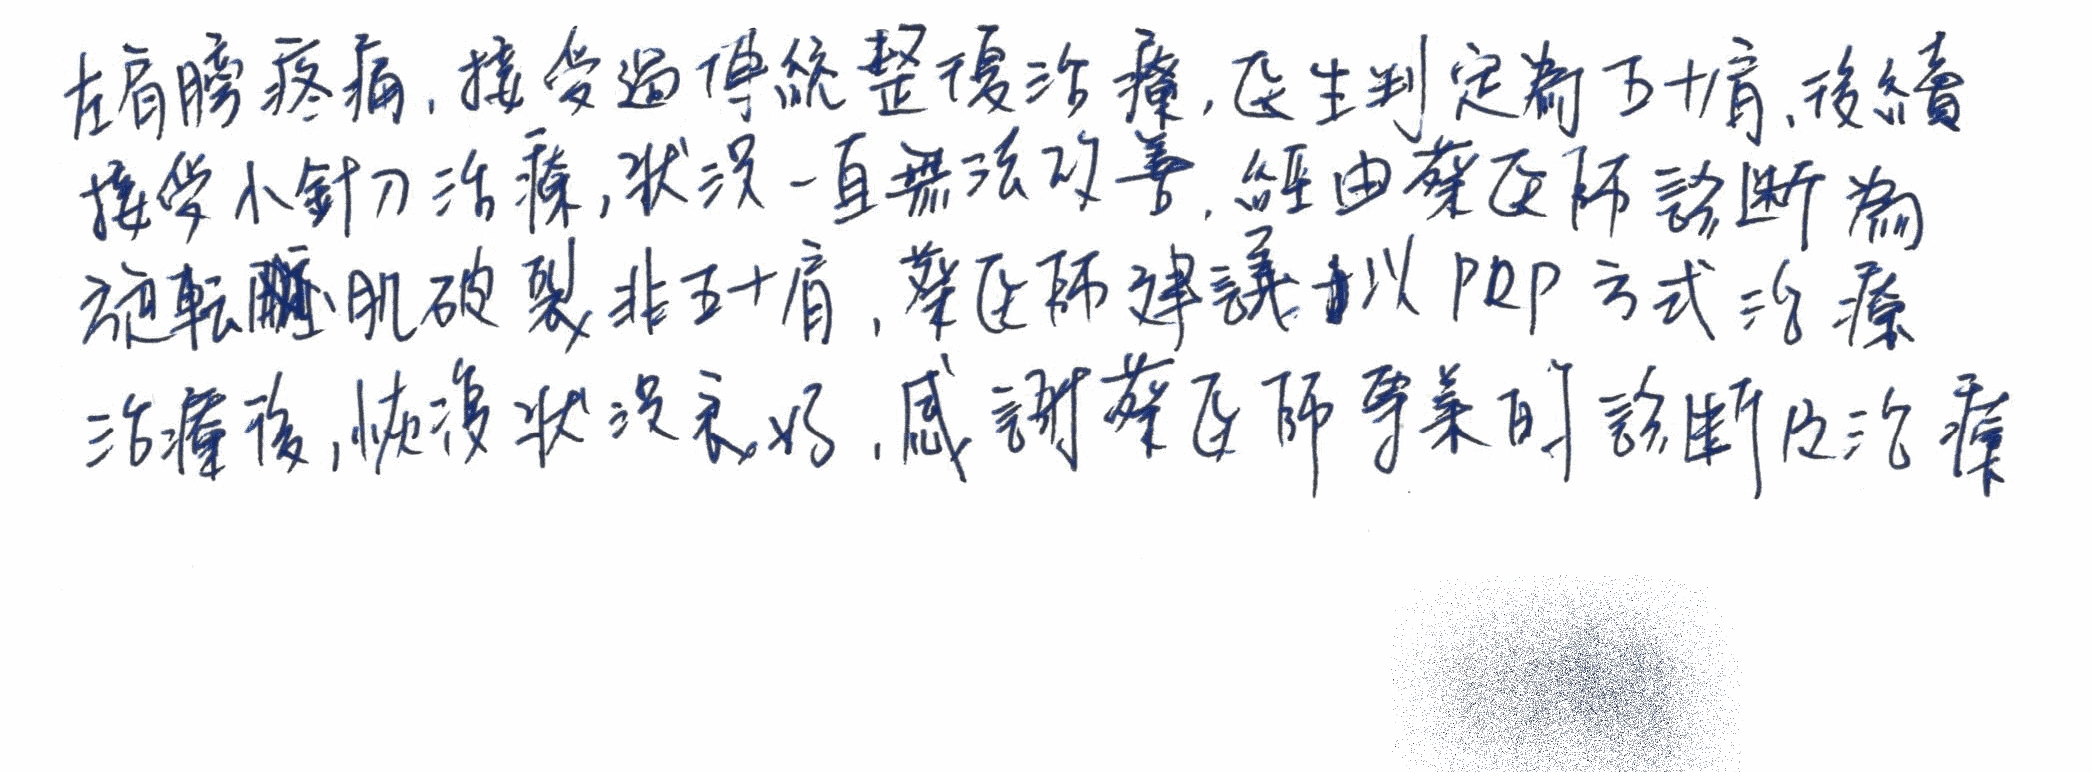 左肩膀疼痛,接受過傳統整復治療,医生判定為五十肩,後續
接受小針刀治療,狀況一直無法改善,經由蔡医師診断為
旋転肌破裂非五十肩,蔡医師建議以PRP方式治療
治療後,恢復狀況良好,感謝蔡医師專業的診断及治療